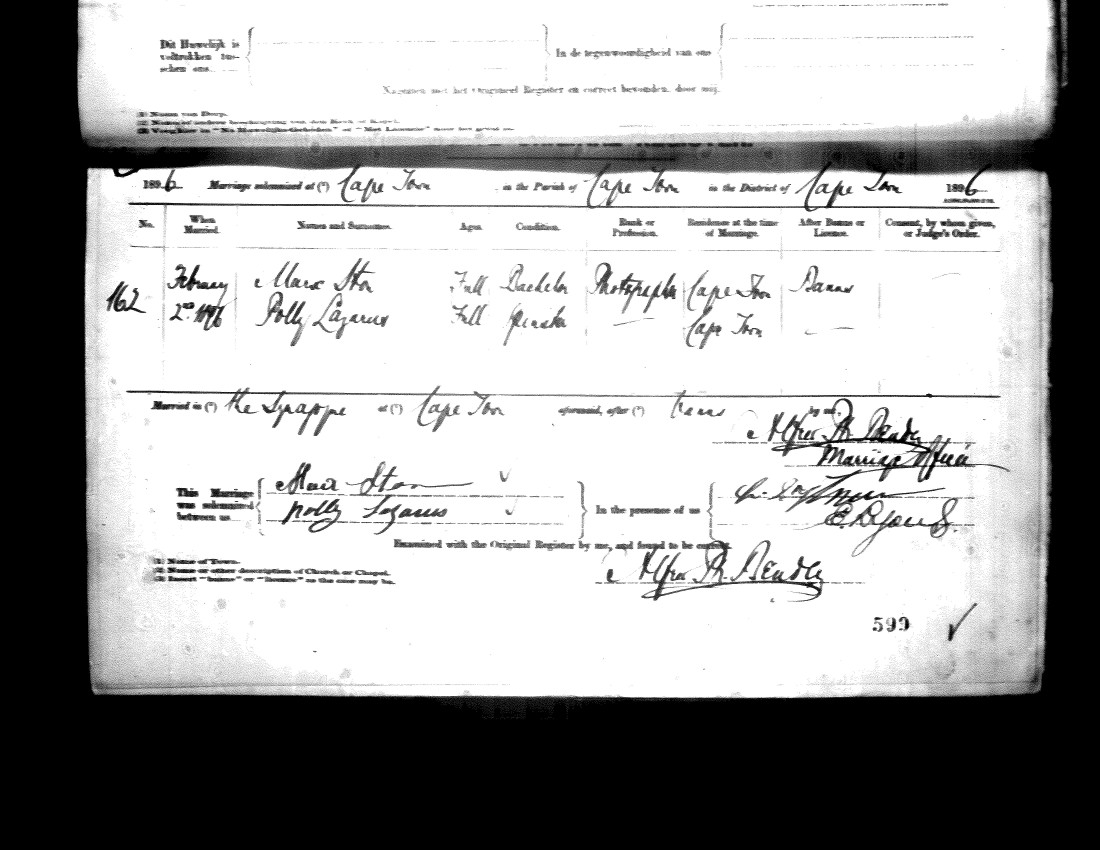 Dit Huwelijk is
voltrokken tus-
schen ons
In de tegenwoordigheid van ons
Nagezien met het Origineel Register en correct bevonden, door mij.
(1) Naam van Dorp.
(2) Naam of andere beschrijving van den Kerk of Kapel.
(3) Voeg hier in "Na Huwelijks-Geboden" of "Met Licentie" naar het geval is.
1896 Marriage solemnized at (1) Cape Town in the Parish of Cape Town in the District of Cape Town 1896
No. When Married. Names and Surnames. Ages. Condition. Rank or Profession. Residence at the time of Marriage. After Banns or Licence. Consent, by whom given, or Judge's Order.
162 February Marx Ston Full Bachelor Photographer Cape Town Banns
2nd 1896 Polly Lazarus Full Spinster Cape Town
Married in (2) the Synagogue at (1) Cape Town aforesaid, after (3) banns by me,
Alfred P. Bender
Marriage Officer
This Marriage was solemnized between us
Marx Ston
Polly Lazarus
In the presence of us
E. Lyons
Examined with the Original Register by me, and found to be correct.
(1) Name of Town.
(2) Name or other description of Church or Chapel.
(3) Insert "banns" or "licence" as the case may be.
Alfred P. Bender
599